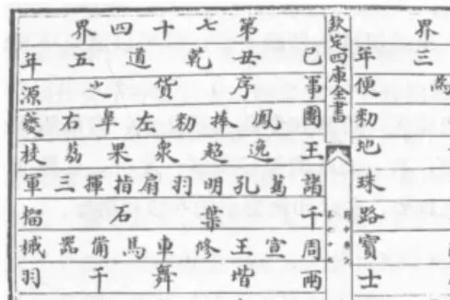 界
三年
為便
勑
地
珠
路
寶
士
欽定四庫全書
第七十四界
己丑乾道五年
序貨之源
團鳳捧勑左臯右夔
王逸超衆果荔枝
諸葛孔明羽扇指揮三軍
千葉石榴
周宣王修車馬備器械
兩堦舞干羽